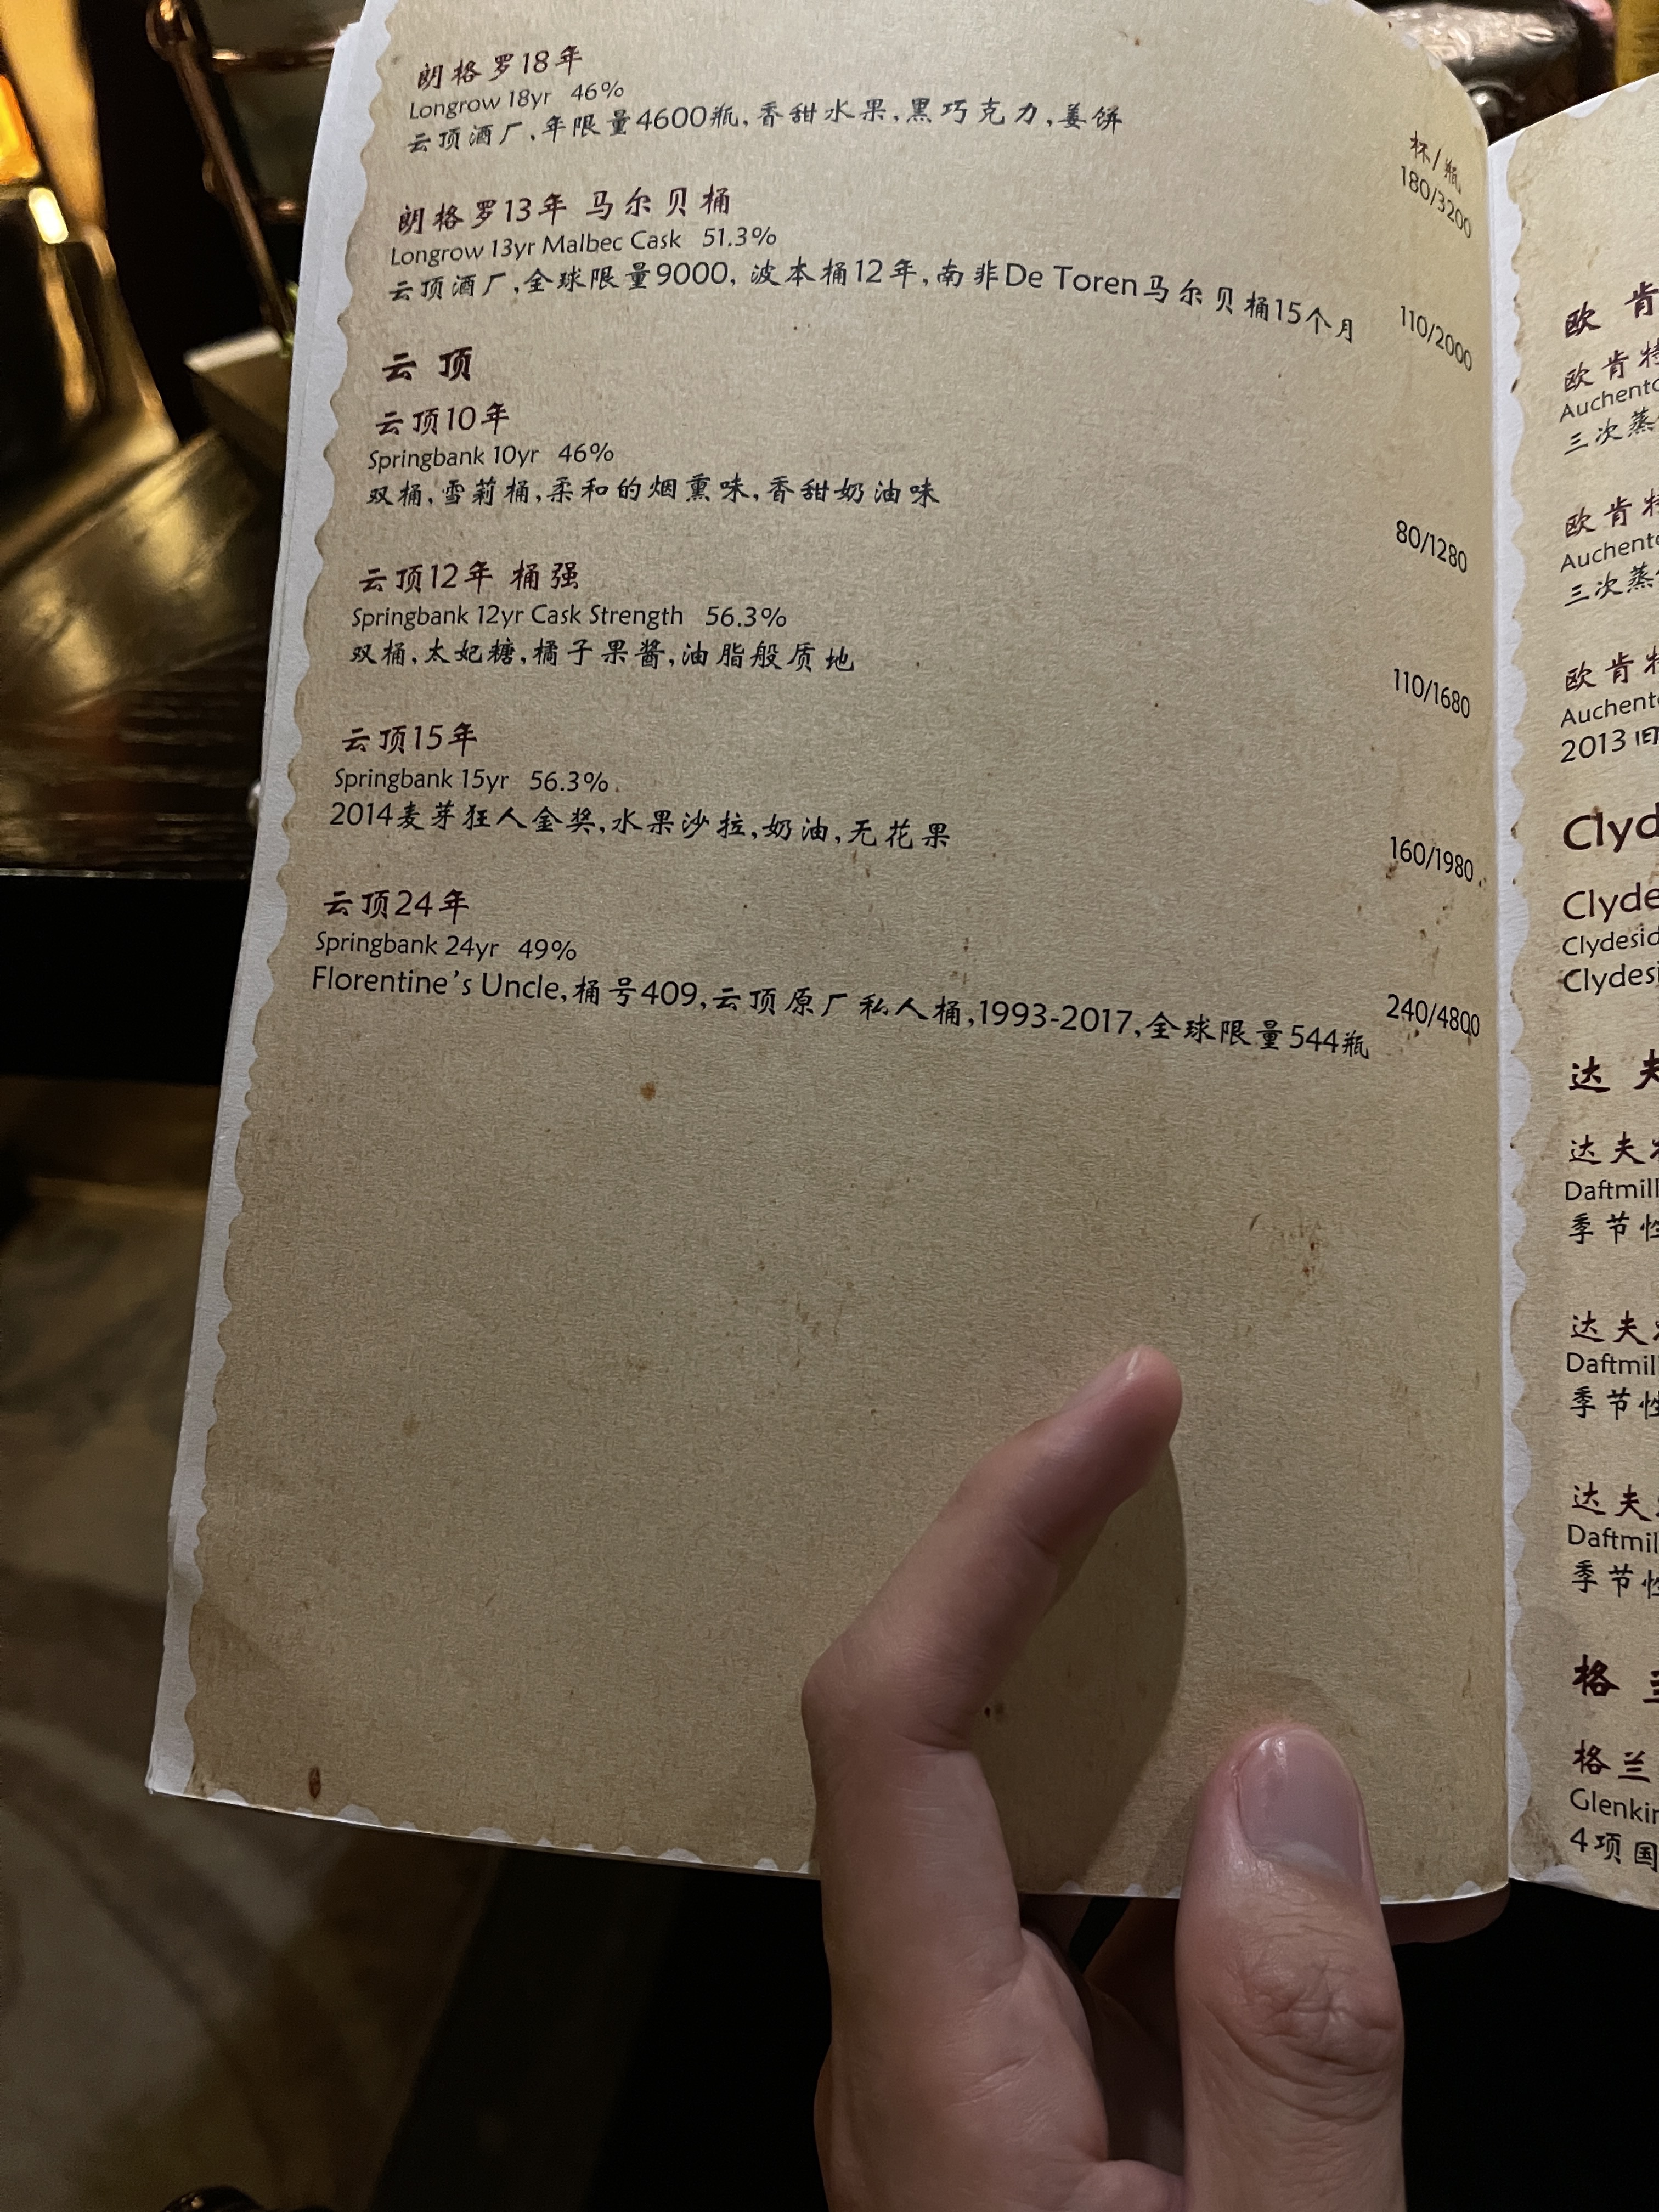 朗格罗18年
Longrow 18yr 46%
云顶酒厂,年限量4600瓶,香甜水果,黑巧克力,姜饼
杯/瓶
180/3200
朗格罗13年 马尔贝桶
Longrow 13yr Malbec Cask 51.3%
云顶酒厂,全球限量9000, 波本桶12年,南非De Toren马尔贝桶15个月
110/2000
云顶
云顶10年
Springbank 10yr 46%
双桶,雪莉桶,柔和的烟熏味,香甜奶油味
80/1280
云顶12年 桶强
Springbank 12yr Cask Strength 56.3%
双桶,太妃糖,橘子果酱,油脂般质地
110/1680
云顶15年
Springbank 15yr 56.3%
2014麦芽狂人金奖,水果沙拉,奶油,无花果
160/1980
云顶24年
Springbank 24yr 49%
Florentine's Uncle,桶号409,云顶原厂私人桶,1993-2017,全球限量544瓶
240/4800
欧肯
欧肯特
三次蒸
欧肯特
三次蒸
欧肯特
2013旧
达夫
达夫
Daftmill
季节性
达夫
Daftmill
季节性
达夫
季节性
格兰
格兰
4项国